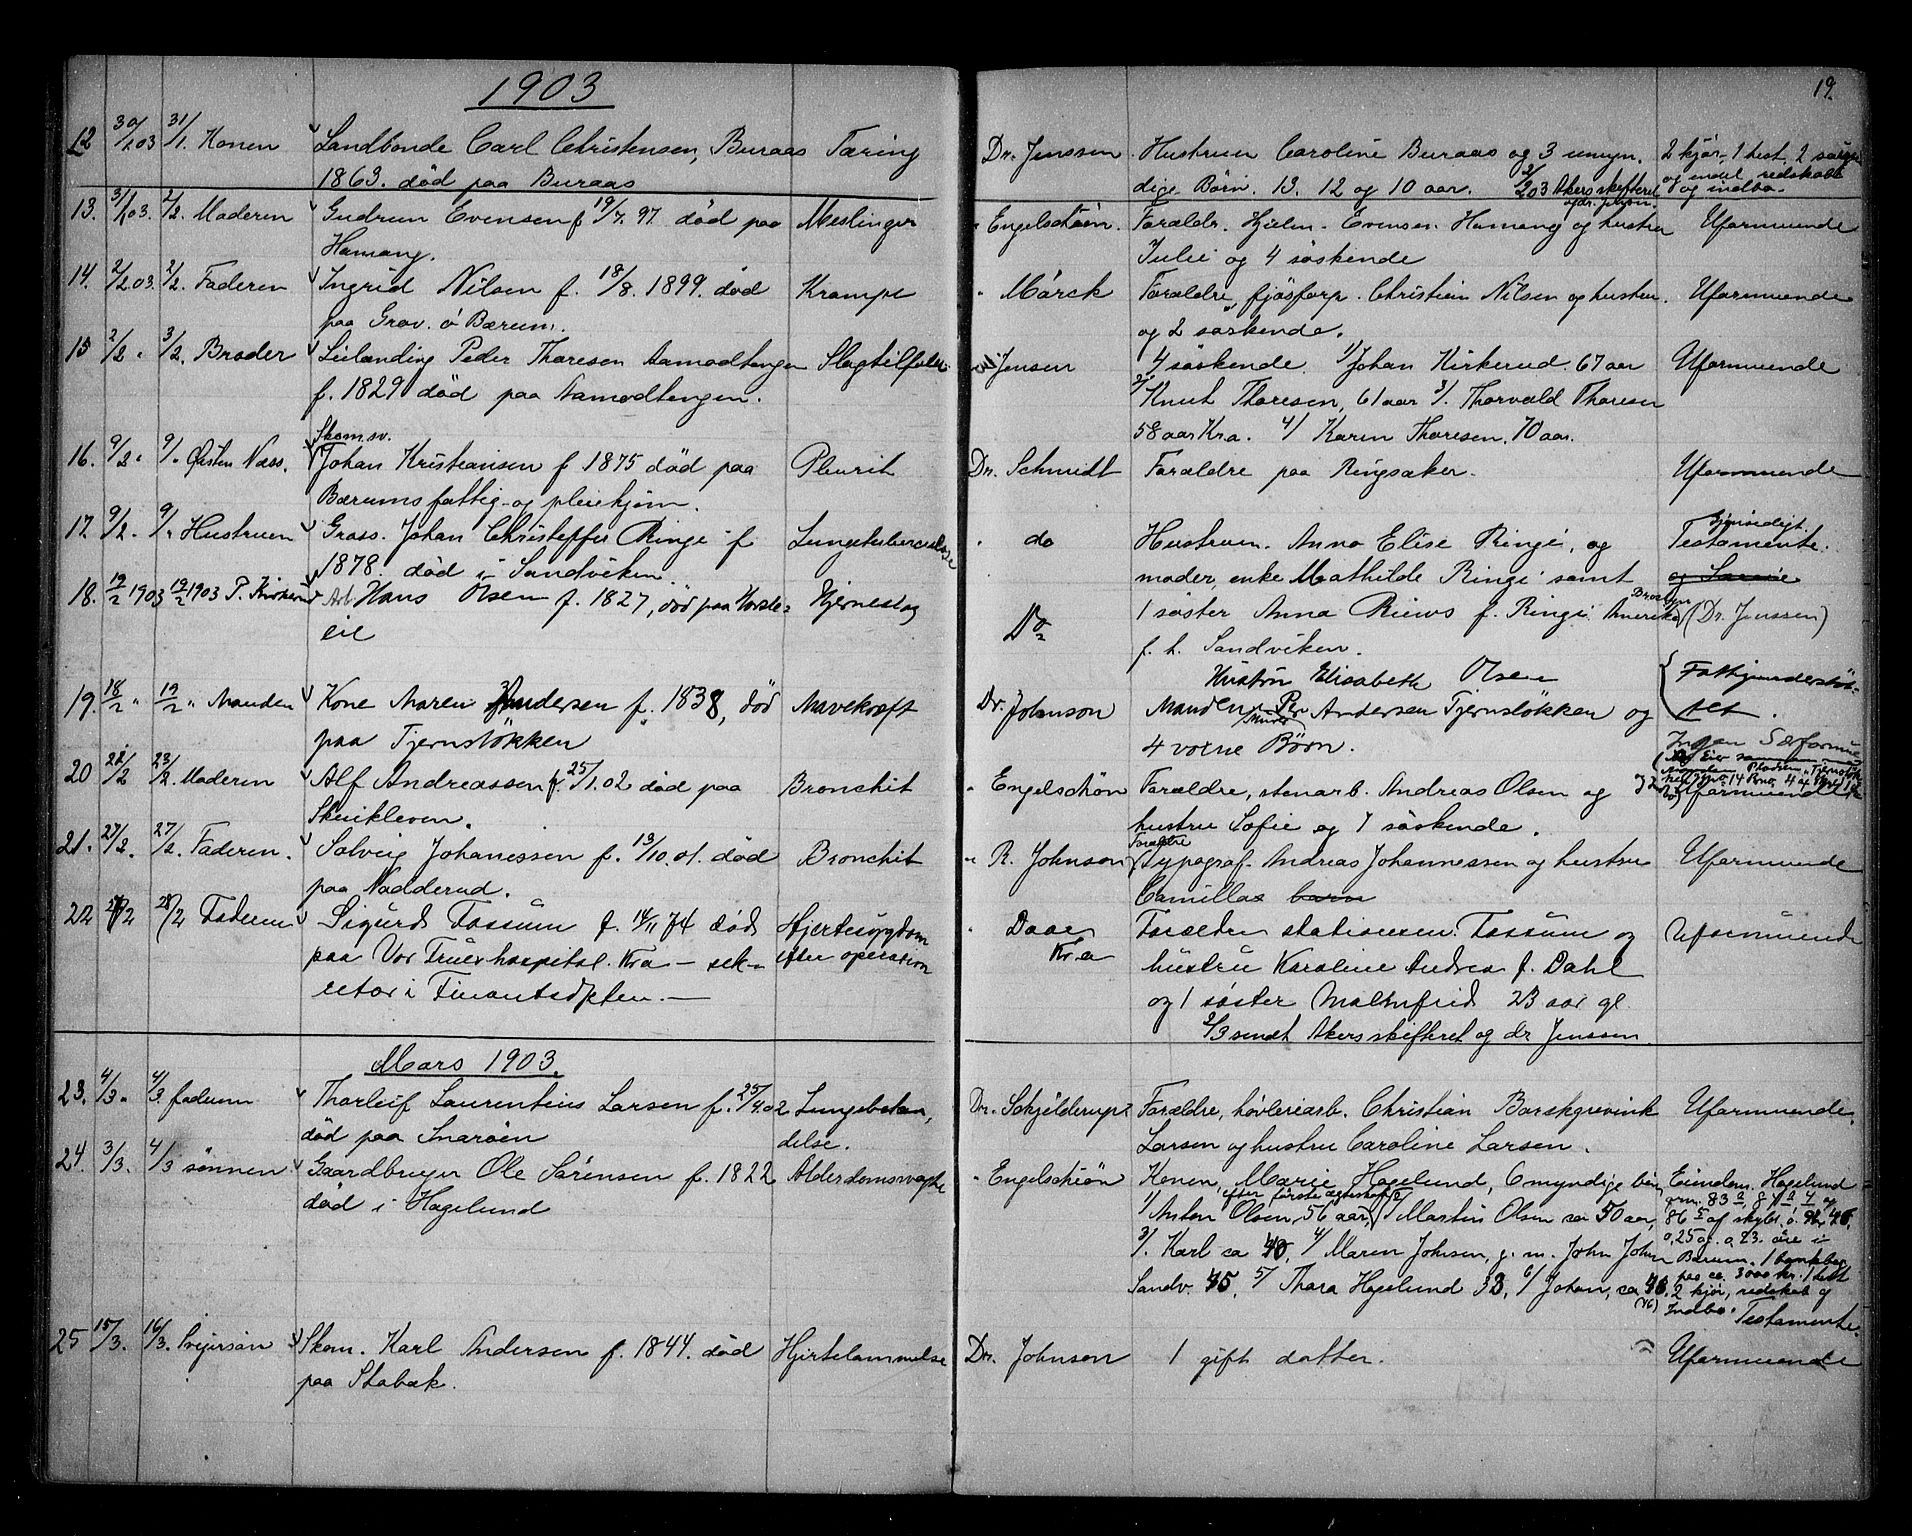 1903
12 30/1 03 31/1. Konen Landbonde Carl Christensen, Buraas Tæring
1863. død paa Buraas
13. 31/1 03. 2/2. Moderen Gudrun Evensen f 19/7. 97. død paa Meslinger
Hamang.
14. 2/2 03. 2/2. Faderen Ingrid Nilsen f. 18/8. 1899. død Krampe
paa Grav. ø Bærum.
15 2/2 " 3/2. Broder Leilænding Peder Thoresen Aamodtangen Slagtilfælde
f. 1829 død paa Aamodtengen.
Skom.sv.
16. 9/2 " 9/" Østen Næss. Johan Kristiansen f 1875 død paa Pleurit
Bærums fattig- og pleiehjem.
17 9/2. 9/" Hustruen Gross. Johan Christoffer Ringi f Lungetuberculose
1878. død i Sandviken.
18. 19/2 1903 19/2 1903 P. Kirkerud Arb. Hans Olsen f. 1827, død paa Hvorsle= Hjerneslag
eie
19. 18/2 " 19/2 " Manden Kone Maren Andersen f. 1838, død Mavekræft
paa Tjernsløkken
20 22/2 23/2. Moderen Alf Andreassen f. 25/1. 02 død paa Bronchit
Skuikleven.
21. 27/2. 27/2. Faderen. Solveig Johanessen f. 13/10. 01. død Bronchit
paa Nadderud.
22 27/2 28/2 Faderen Sigurd Fossum f. 14/11 74 død Hjertesygdom
paa Vor Frues hospital. Kra — sek- efter operation
retær i Finantsdpten. —
Mars 1903.
23. 4/3. " 4/3. faderen Thorleif Laurentius Larsen f. 25/4. 02 Lungebetæn,
død paa Snarøen delse.
24. 3/3. 4/3 sønnen Gaardbruger Ole Sørensen f. 1822 Alderdomssvaghe
død i Hagelund
25 15/3. 16/3. Svigersøn Skom. Karl Andersen f. 1844. død Hjertelammelse
paa Stabæk.
19.
Dr. Jenssen Hustruen Caroline Buraas og 3 umyn. 2 kjør, 1 hest, 2
dige Børn. 13. 12 og 10 aar. 2/2 03 Akers skifteret og endel redskab
og indbo.
" Engelschiøn. Forældr. Hjelm. Evensen. Hamang og hustru Uformuende
Julie og 4 søskende
" Mørck Forældre, fjøsforp. Christian Nilsen og hustru. Uformuende
og 2 søskende.
" Jensen 4 søskende. 1/ Johan Kirkerud. 67 aar Uformuende
2/ Knut Thoresen, 61 aar 3/. Thorvald Thoresen
58 aar Kra. 4/ Karen Thoresen, 70 aar.
Dr. Schmidt Forældre paa Ringsaker. Uformuende
Gjensidigt
" do Hustruen. Anna Elise Ringi, og Testamente.
moder, enke Mathilde Ringi samt
Do 1 søster Anna Riews f. Ringi. Amerika (Dr. Jenssen)
f. h. Sandviken.
Hustru Elisabeth Olsen Fattigunderstøt-
tet.
Dr. Johnson Manden Per Andersen Tjernsløkken og
4 voxne Børn. Ingen Særformue
" Engelschiøn Forældre, stenarb. Andreas Olsen og Uformuende
hustru Sofie og 7 søskende.
Forældre
" R. Johnson Typograf. Andreas Johannessen og hustru Uformuende
Camilla barn
" Daae Forældre stationsm. Fossum og Uformuende
Kra hustru Karoline Andrea f. Dahl
og 1 søster Malmfrid 23 aar gl.
2/3 sendt Akers skifteret og dr Jenssen
Dr. Schjelderup Forældre, høvleriarb. Christian Borchgrevink Uformuende.
Larsen og hustru Caroline Larsen.
" Engelschiøn Konen, Marie Hagelund, 6 myndige børn Eiendom. Hagelund
efter første ægteskab
1/ Anton Olsen, 56 aar, 2/ Martin Olsen ca 50 aar,
3/. Karl ca 40, 4/ Maren Johnsen, g. m. John John Bærum. 1 bankbog
Sandv. 45, 5/ Thora Hagelund 33, 6/ Johan, ca 40. paa ca. 3000 kr. 1 hest
2 kjør, redskab og
Indbo. Testamente.
Dr. Johnson 1 gift datter. Uformuende